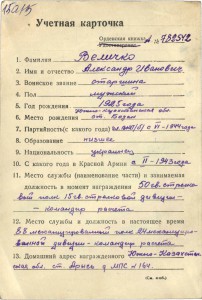 Учетная карточка
Орденская книжка № 738542
1. Фамилия Величко
2. Имя и отчество Александр Иванович
3. Воинское звание старшина
4. Пол мужской
5. Год рождения 1925 года
6. Место рождения
7. Партийность (с какого года) с VI-1944 года
8. Образование низшее
9. Национальность украинец
10. С какого года в Красной Армии с II-1943 года
11. Место службы (наименование части) и занимаемая
должность в момент награждения 50 св. стрелко-
вый полк 15 св. стрелковой дивизии -
- командир расчета
12. Место службы и должность в настоящее время
механизированный полк механизиро-
ванной дивизии - командир расчета
13. Домашний адрес награжденного Южно-Казахстан-
ская обл. ст. Арысь д. МПС № 164.
(См. на об.)